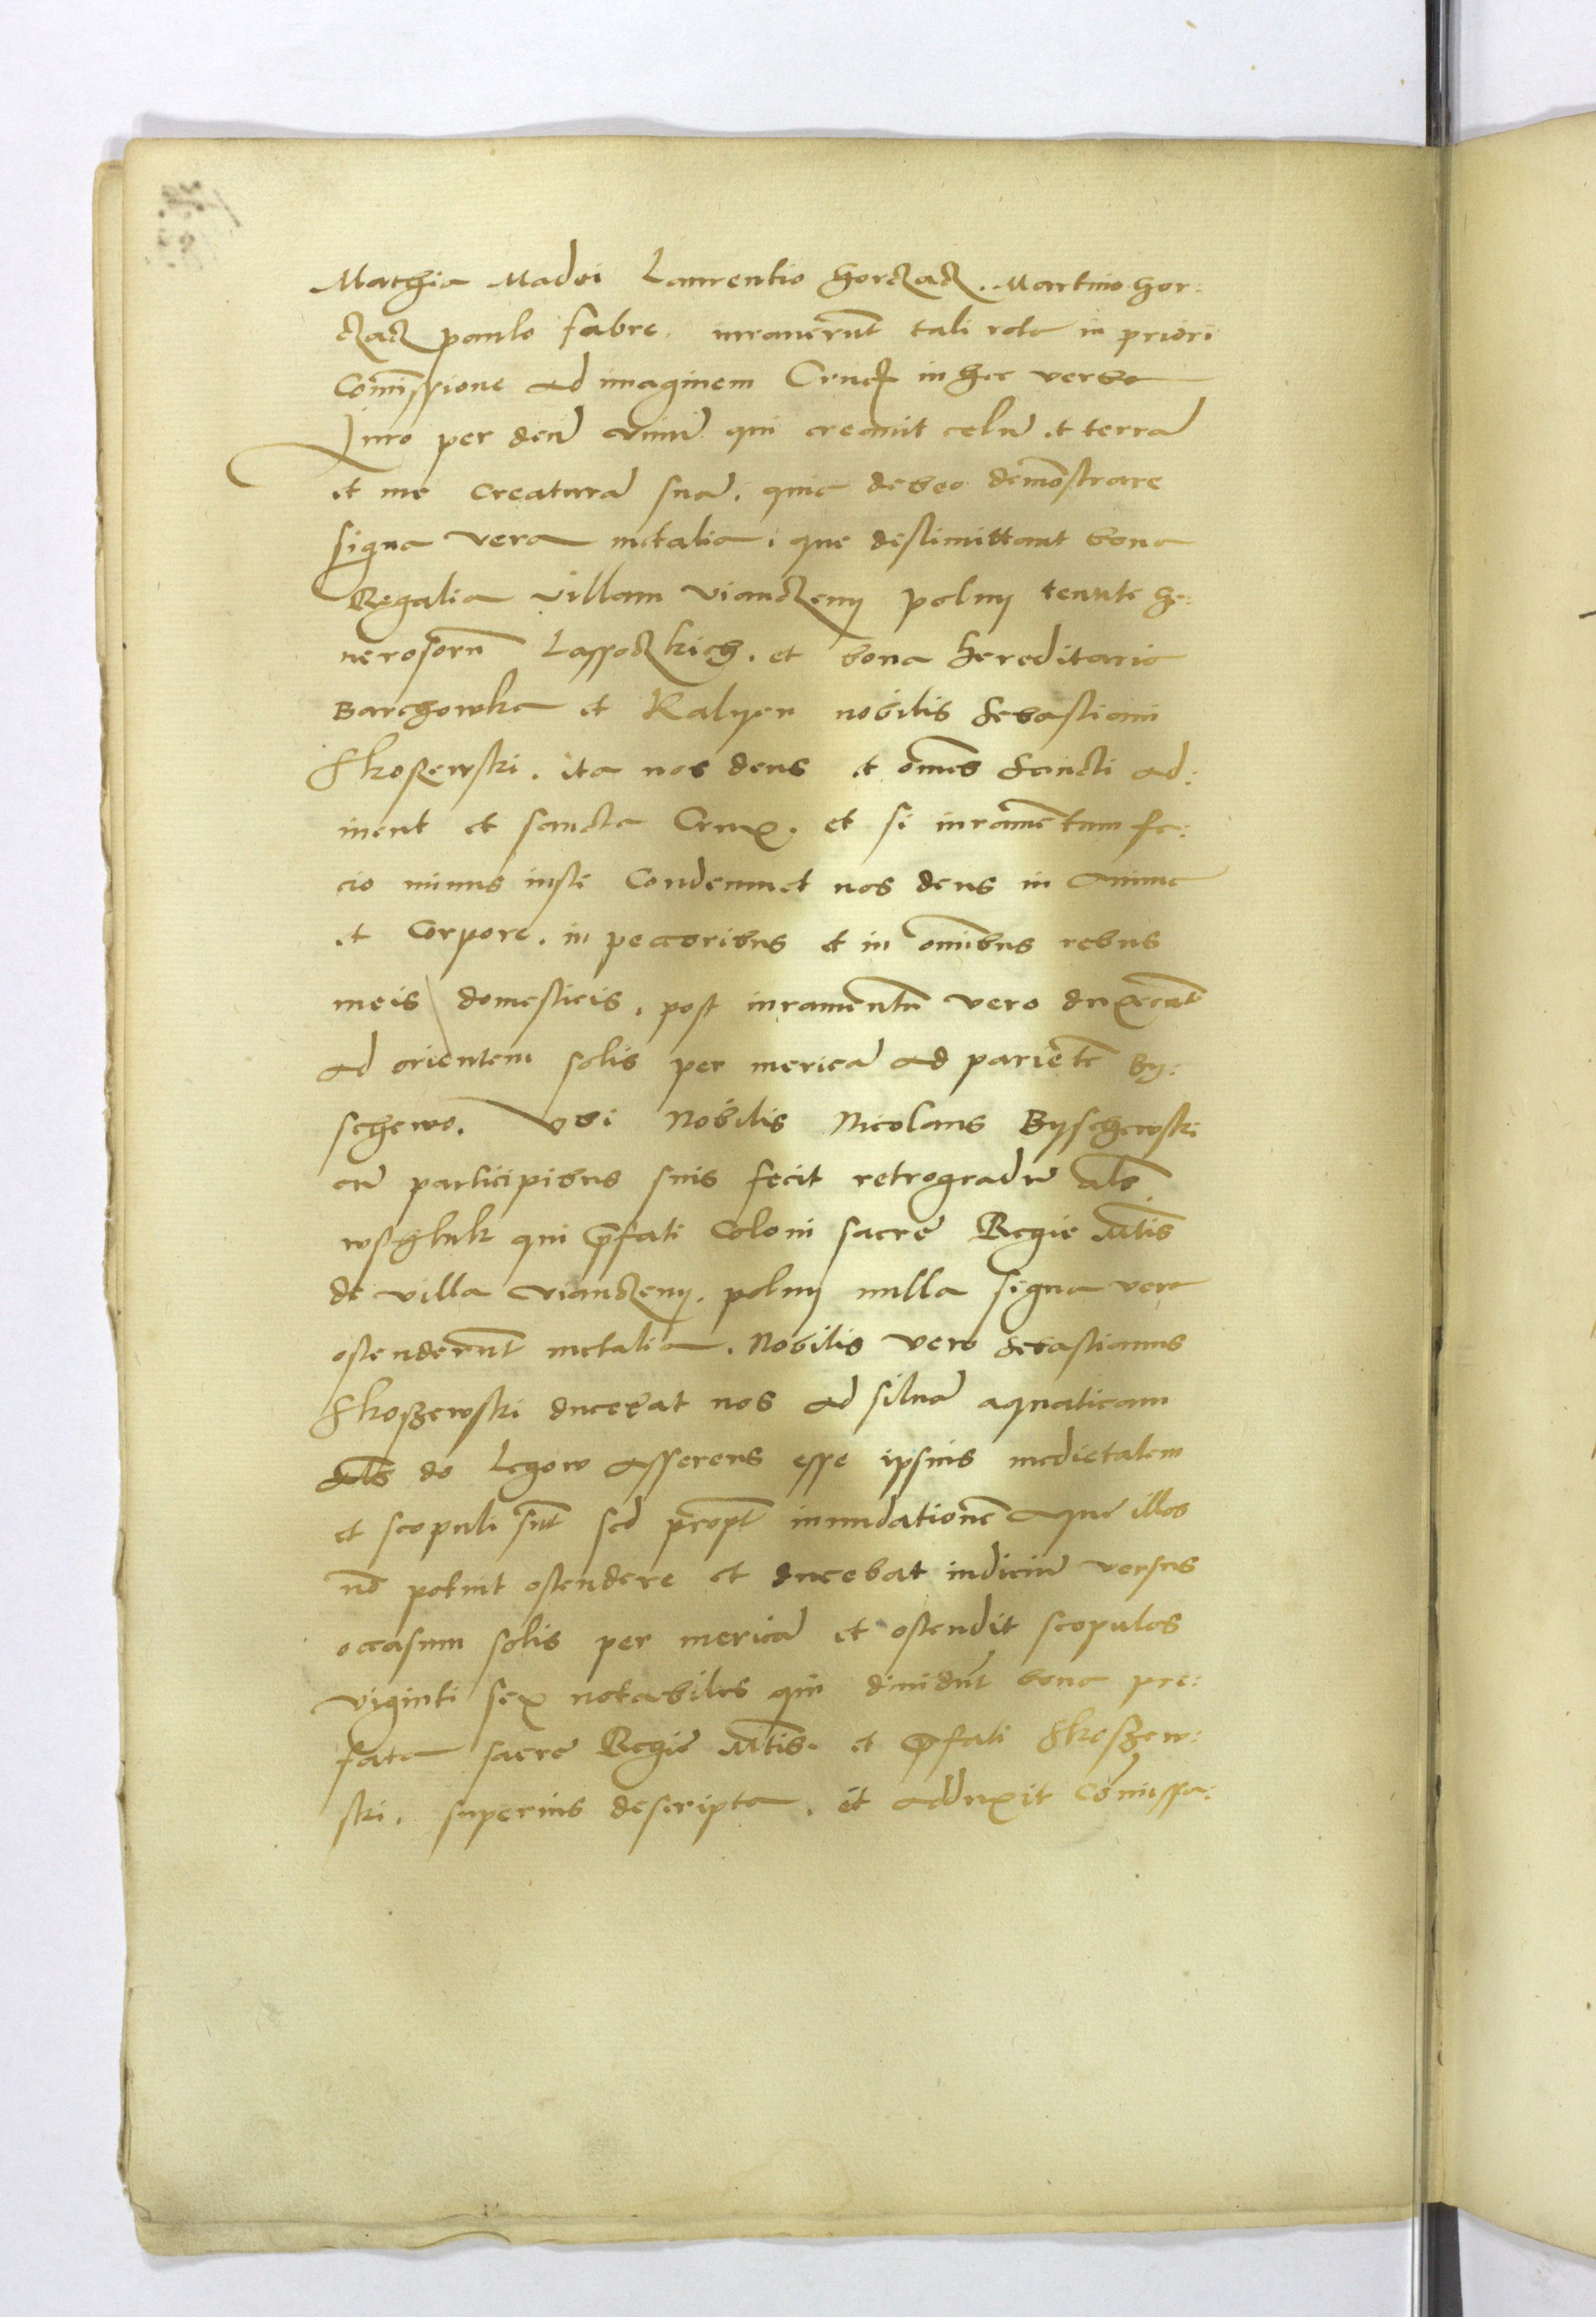 Mathia Madei Laurentio Horczacz. Martino Hor:
czacz paulo fabro. iuraverunt tali rota in priori
Comissione ad imaginem Crucis in hec verba
Juro per deũ vivũ qui creavit celũ et terrã
et me creaturã suã. quia debeo demõstrare
signa vera metalia. que distimittant bona
Regalia villam vianczeny polny tenute Ge:
nerosorũ Lassoczkich. et bona hereditaria
Barchowka et Kalyen nobilis Sebastiani
Skoszewski. ita nos deus et õmes Sancti ad:
iuvent et sancta Crux. et si iuramẽtum fa:
cio minus iuste Condemnet nos deus in anima
et Corpore. in peccoribus et in omĩbus rebus
meis domesticis. post iuramentũ vero duxerũt
ad orientem solis per mericã ad parietẽ By:
schewo. Vbi Nobilis Nicolaus Byschewski
cũ participibus suis fecit retrogradũ als
wsthluk qui p̃fati Coloni sacre Regie Mtis
de villa vianczeny. polny nulla signa vera
ostenderũt metalia. Nobilis vero Sebastianus
Skoszewski ducebat nos ad silvã aquaticam
als do Legow asserens esse ipsius medietatem
et scopuli sũt sed propt̃ inundationẽ aque illos
nõ potuit ostendere et ducebat iudiciũ versus
occasum solis per mericã et ostendit scopulos
viginti sex notabiles qui dividũt bona pre:
fata sacre Regie Mtis. et p̃fati Skoszew:
ski. superius descripta. et adduxit Cõmissa: